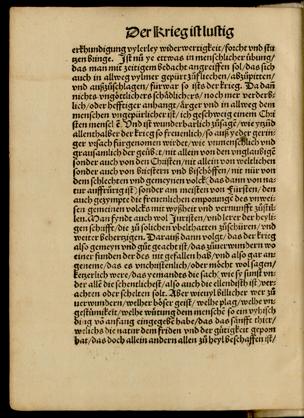 Der Krieg ist lustig
erkhundigung vylerley widerwertigkeit/ forcht vnd stu
tzen bunge. Ist nũ ye ettwas in menschlicher übung/
das man mit zeitigem bedacht angreiffen sol/ das sich
auch in allweg vylmer gepürt zůfliechen/ abzůpitten/
vnd außzůschlagen/ fürwar so ists der krieg. Da dañ
nichts vngöttlichers schädlichers/ noch mer verderb/
lich/ oder hefftiger anhangt/ ärger vnd in allweg dem
menschen vngepürlicher ist/ ich geschweyg einem Chri
sten mensch. Vnd ist wunderbarlich zůsage/ wie yczũd
allenthalbẽ der krieg so freuenlich/ so auß yeder gerin
ger vrsach fürgenommen wirdet/ wie vnmenschlich vnd
grausamlich der gefürt/ nit allein von den vnglaubigẽ
sonder auch von den Christen/ nit allein von weltlichen
sonder auch von priestern vnd bischöffen/ nit nůr von
dem schlechten vnd gemeynen volck (das dann von na
tur auffrürig ist) sonder am meisten von Fürsten/ den
auch gezympte die freuenlichen empörung des vnwei
sen gemeinen volcks mit weyßheit vnd vernunfft zůstil
len. Man fyndt auch wol Juristen/ vnd lerer der heyli
gen schrifft/ die zů solichen übelthatten zůschüren/ vnd
weiter behertzigen. Darauß dann volgt/ das der krieg
also gemeyn vnd güt geacht ist/ das zůuerwundern wo
einer funden der des nit gefallen hab/ vnd also gar an
geneme/ das es vnchristenlich/ oder möcht wol sagen/
kezerlich were/ das yemandts die sach/ wie sy sunst vn
der allẽ die schentlichest/ also auch die ellendisth ist/ ver
achten oder schelten solt. Aber wieuyl billicher wer zů
uerwundern/ welher böser geist/ welhe plag/ welhe vn
gestümikeit/ welhe wütung dem mensche so ein vyhisch
ding võ anfang eingegebẽ habe/ das das sanfft thier/
welichs die natur dem friden vnd der gütigkeit geporn
hat/ das doch allein andern allen zů heyl beschaffen ist/